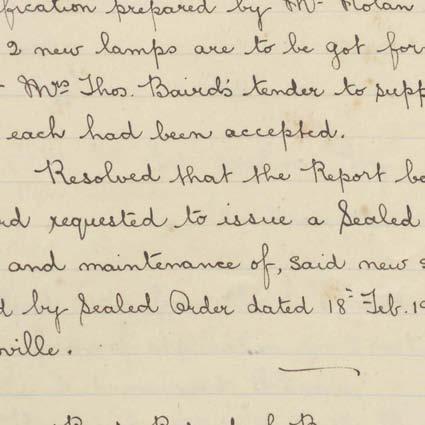 ification prepared by Mr. Nolan
2 new lamps are to be got for
Mrs Thos. Baird's tender to supp
each had been accepted.
Resolved that the Report be
rd requested to issue a Sealed
and maintenance of, said new s
d by Sealed Order dated 18th Feb. 19
ville.